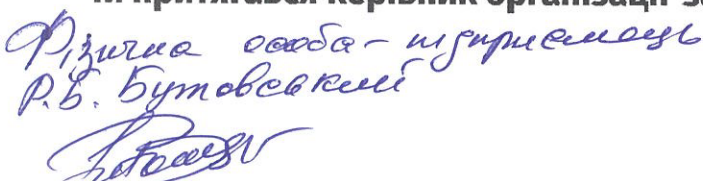 притягався керівник організації
Фізична особа - підприємець
Р.Б. Бутовський